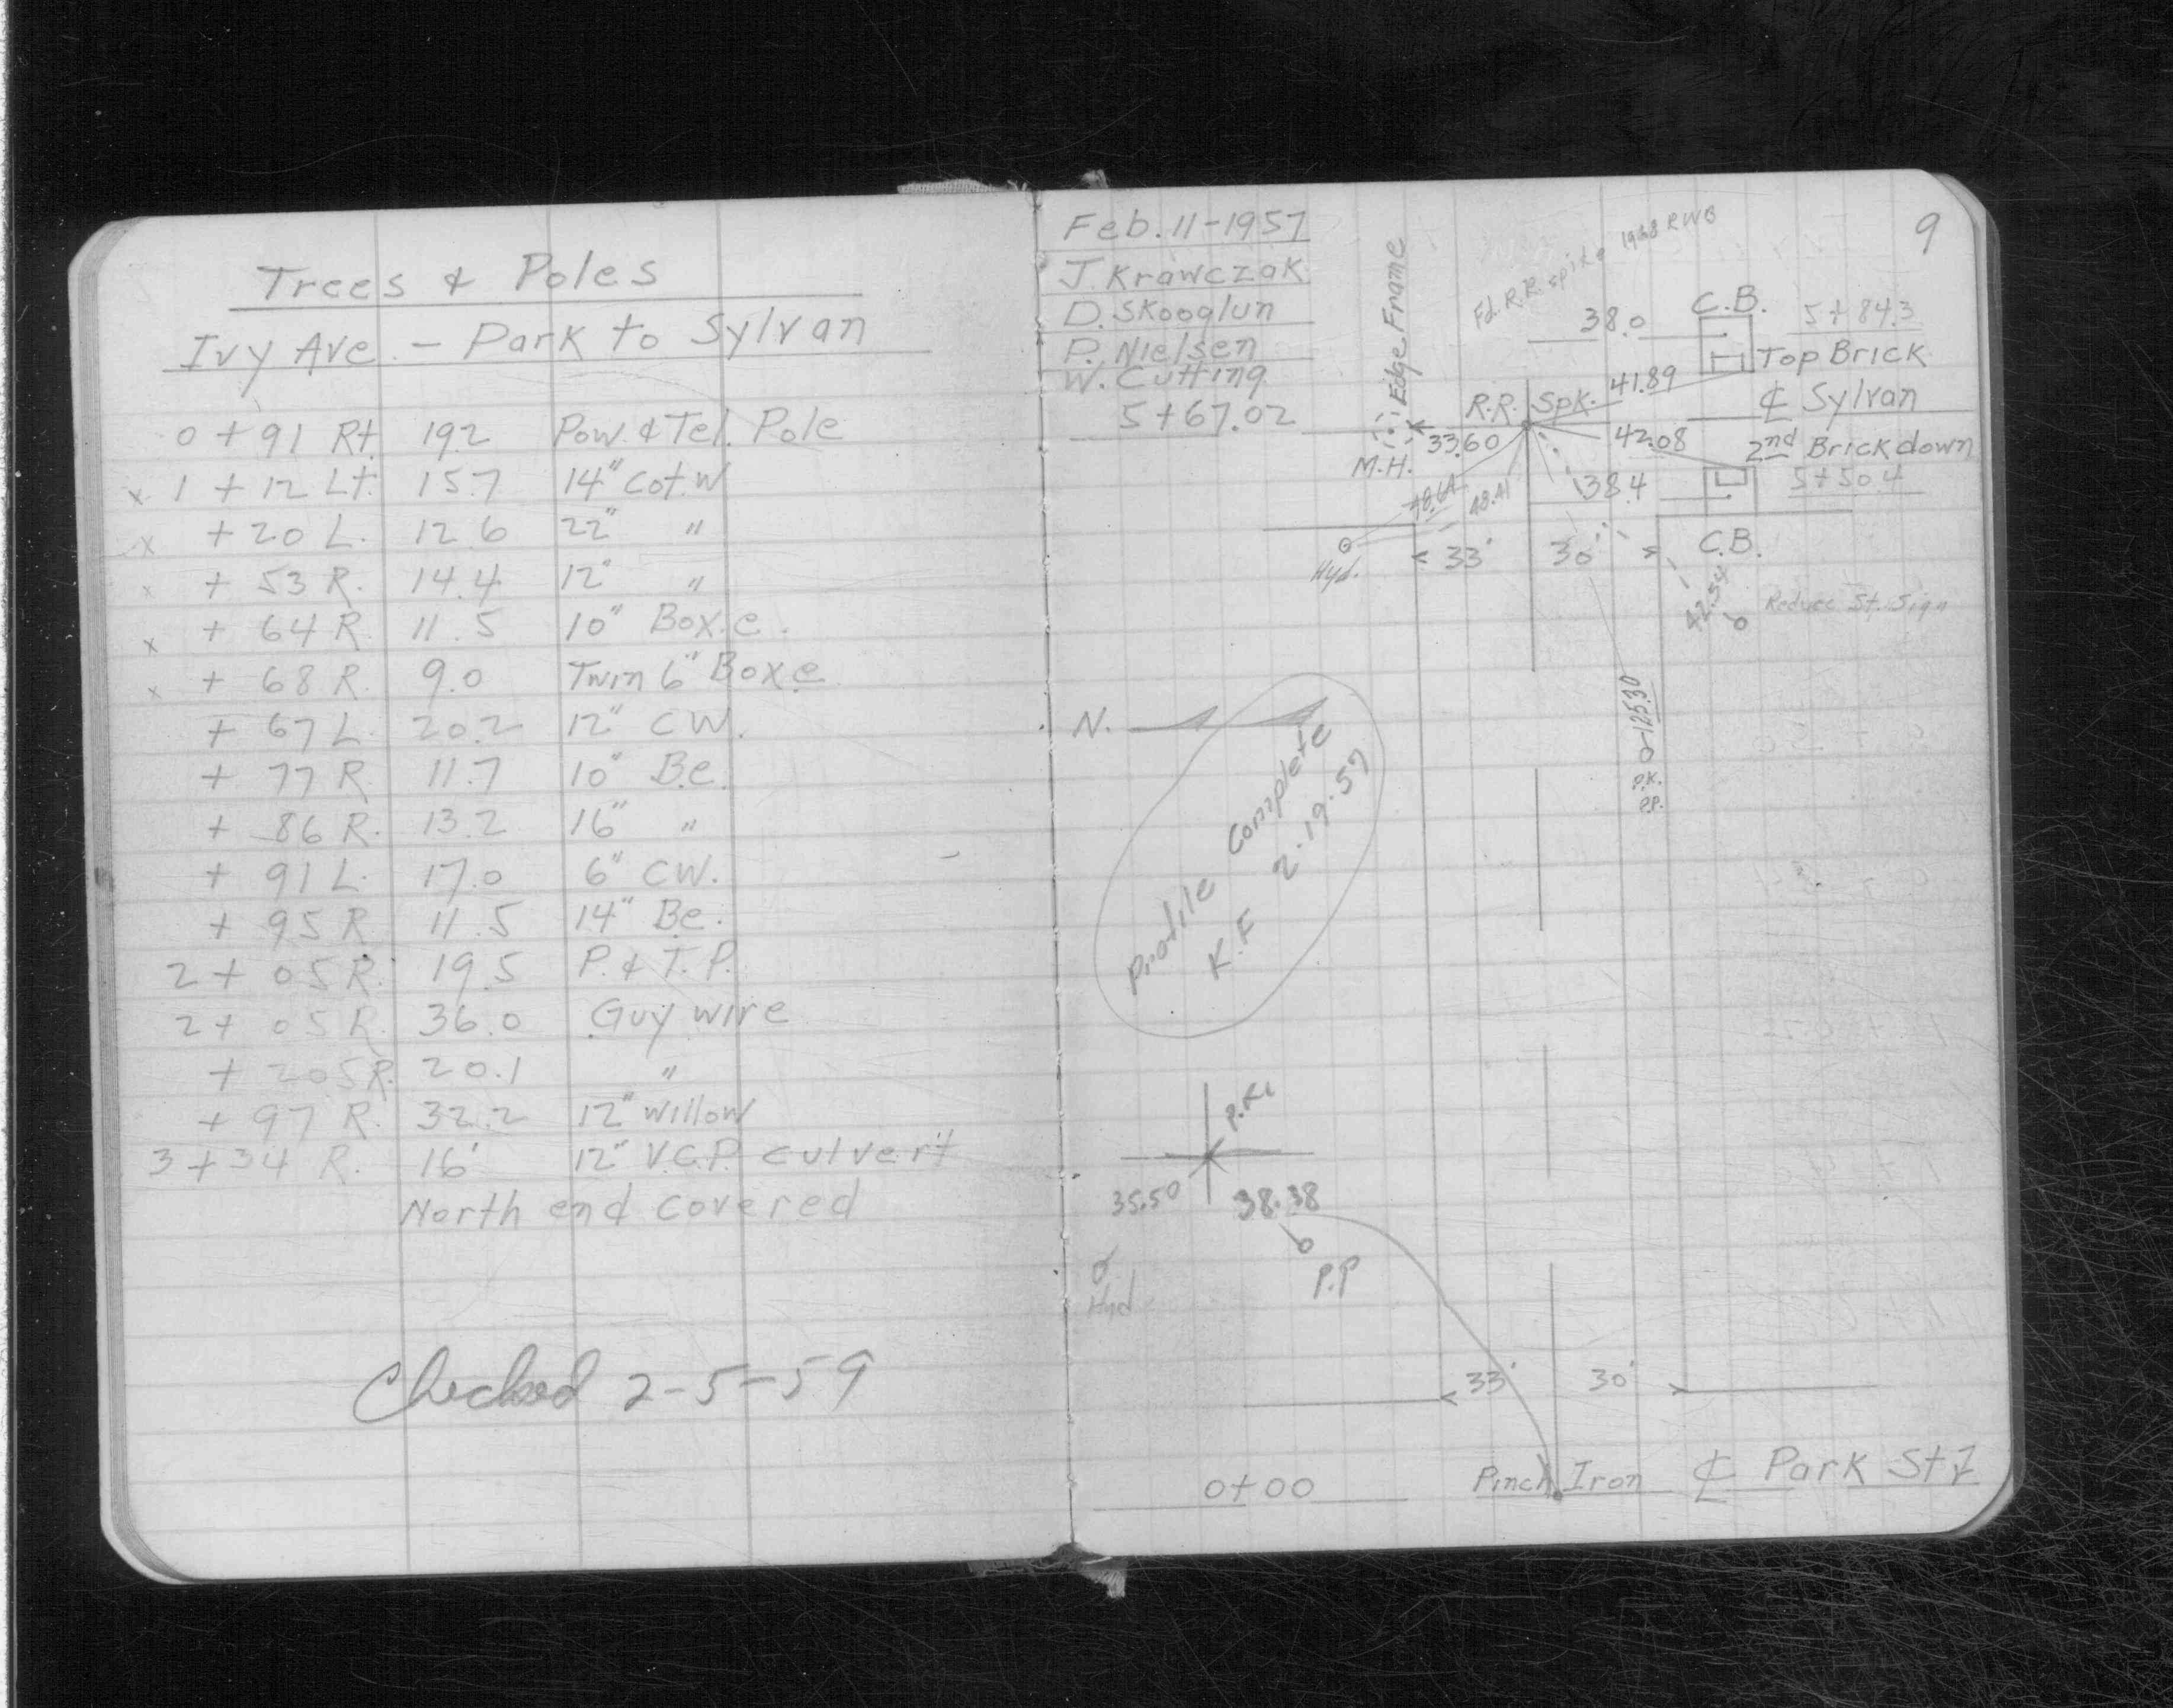 Trees & Poles
Ivy Ave. - Park to Sylvan
0 + 91 Rt. 19.2 Pow. & Tel. Pole
x 1 + 12 Lt. 15.7 14" Cot.w
x + 20 L. 12.6 22" "
x + 53 R. 14.4 12" "
x + 64 R. 11.5 10" Box.e.
x + 68 R. 9.0 Twin 6" Box e
+ 67 L. 20.2 12" C W.
+ 77 R 11.7 10" B.e.
+ 86 R. 13.2 16" "
+ 91 L. 17.0 6" CW.
+ 95 R 11.5 14" Be.
2 + 05 R. 19.5 P. & T. P.
2 + 05 R. 36.0 Guy wire
+ 205 R. 20.1 "
+ 97 R. 32.2 12" willow
3 + 34 R. 16' 12" V.C.P. culvert
North end covered
Checked 2-5-59
9
Feb. 11-1957
J. Krawczak
D. Skooglun
P. Nielsen
W. Cutting
5 + 67.02
Edge Frame
M.H.
Fd. R.R. spike 1968 RWB
38.0 C.B. 5 + 84.3
Top Brick
41.89
R.R. Spk. ℄ Sylvan
33.60 42.08 2nd Brick down
38.4 5 + 50.4
48.64 48.41
C.B.
Hyd. 33' 30'
42.54
Reduce St. Sign
125.30
P.K.
P.P.
N.
Profile Complete
K.F 2-19-57
P.K.
35.50 38.38
P.P
Hyd
33' 30'
0+00 Pinch Iron ℄ Park St